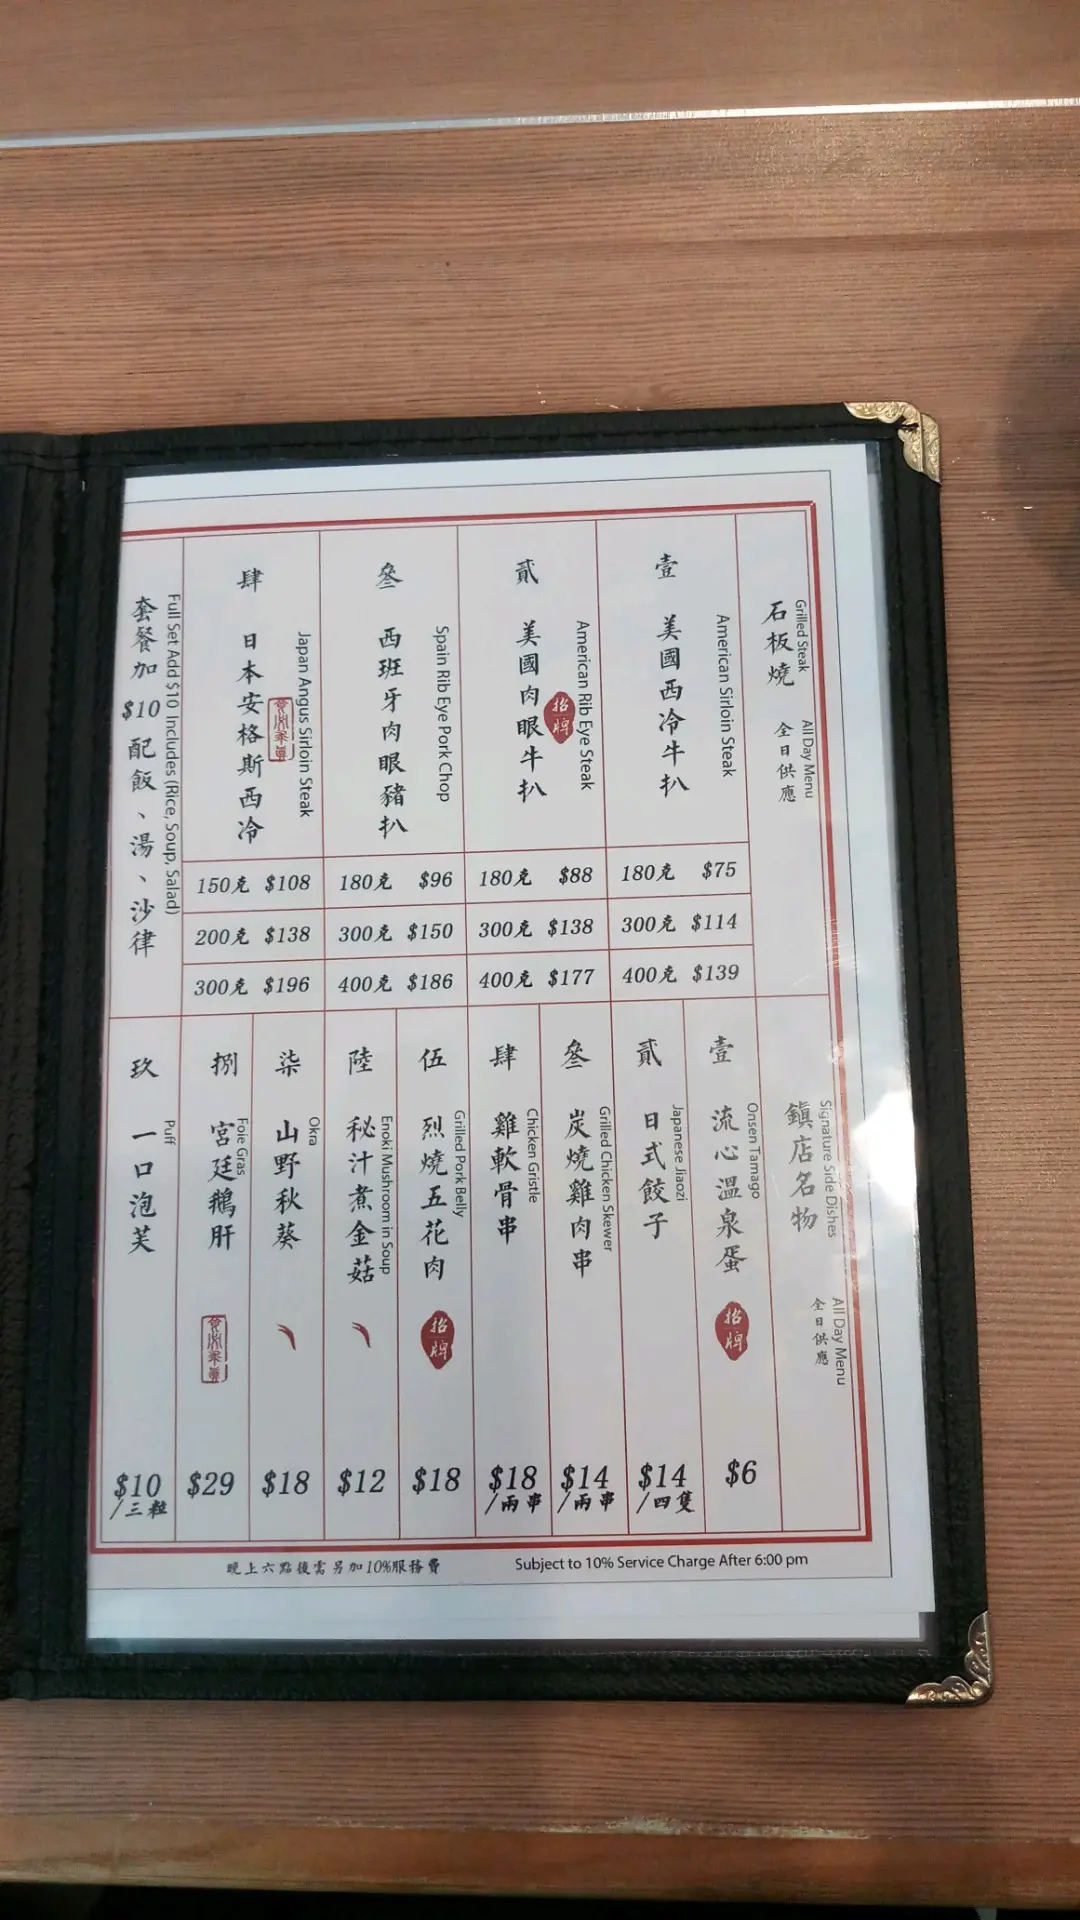 Grilled Steak
石板燒
All Day Menu
全日供應
壹
American Sirloin Steak
美國西冷牛扒
180克 $75
300克 $114
400克 $139
貳
American Rib Eye Steak
美國肉眼牛扒
招牌
180克 $88
300克 $138
400克 $177
叄
Spain Rib Eye Pork Chop
西班牙肉眼豬扒
180克 $96
300克 $150
400克 $186
肆
Japan Angus Sirloin Steak
日本安格斯西冷
150克 $108
200克 $138
300克 $196
Full Set Add $10 Includes (Rice, Soup, Salad)
套餐加 $10 配飯、湯、沙律
Signature Side Dishes
鎮店名物
All Day Menu
全日供應
壹
Onsen Tamago
流心溫泉蛋
招牌
$6
貳
Japanese Jiaozi
日式餃子
$14
/四隻
叄
Grilled Chicken Skewer
炭燒雞肉串
$14
/兩串
肆
Chicken Gristle
雞軟骨串
$18
/兩串
伍
Grilled Pork Belly
烈燒五花肉
招牌
$18
陸
Enoki Mushroom in Soup
秘汁煮金菇
$12
柒
Okra
山野秋葵
$18
捌
Foie Gras
宮廷鵝肝
$29
玖
Puff
一口泡芙
$10
/三粒
晚上六點後需另加10%服務費
Subject to 10% Service Charge After 6:00 pm